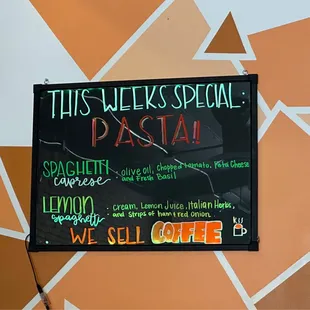 THIS WEEKS SPECIAL:
PASTA!
SPAGHETTI caprese - olive oil, Chopped tomato, Feta Cheese
and Fresh Basil
LEMON spaghetti - Cream, Lemon Juice, Italian Herbs,
and strips of ham & red onion
WE SELL COFFEE